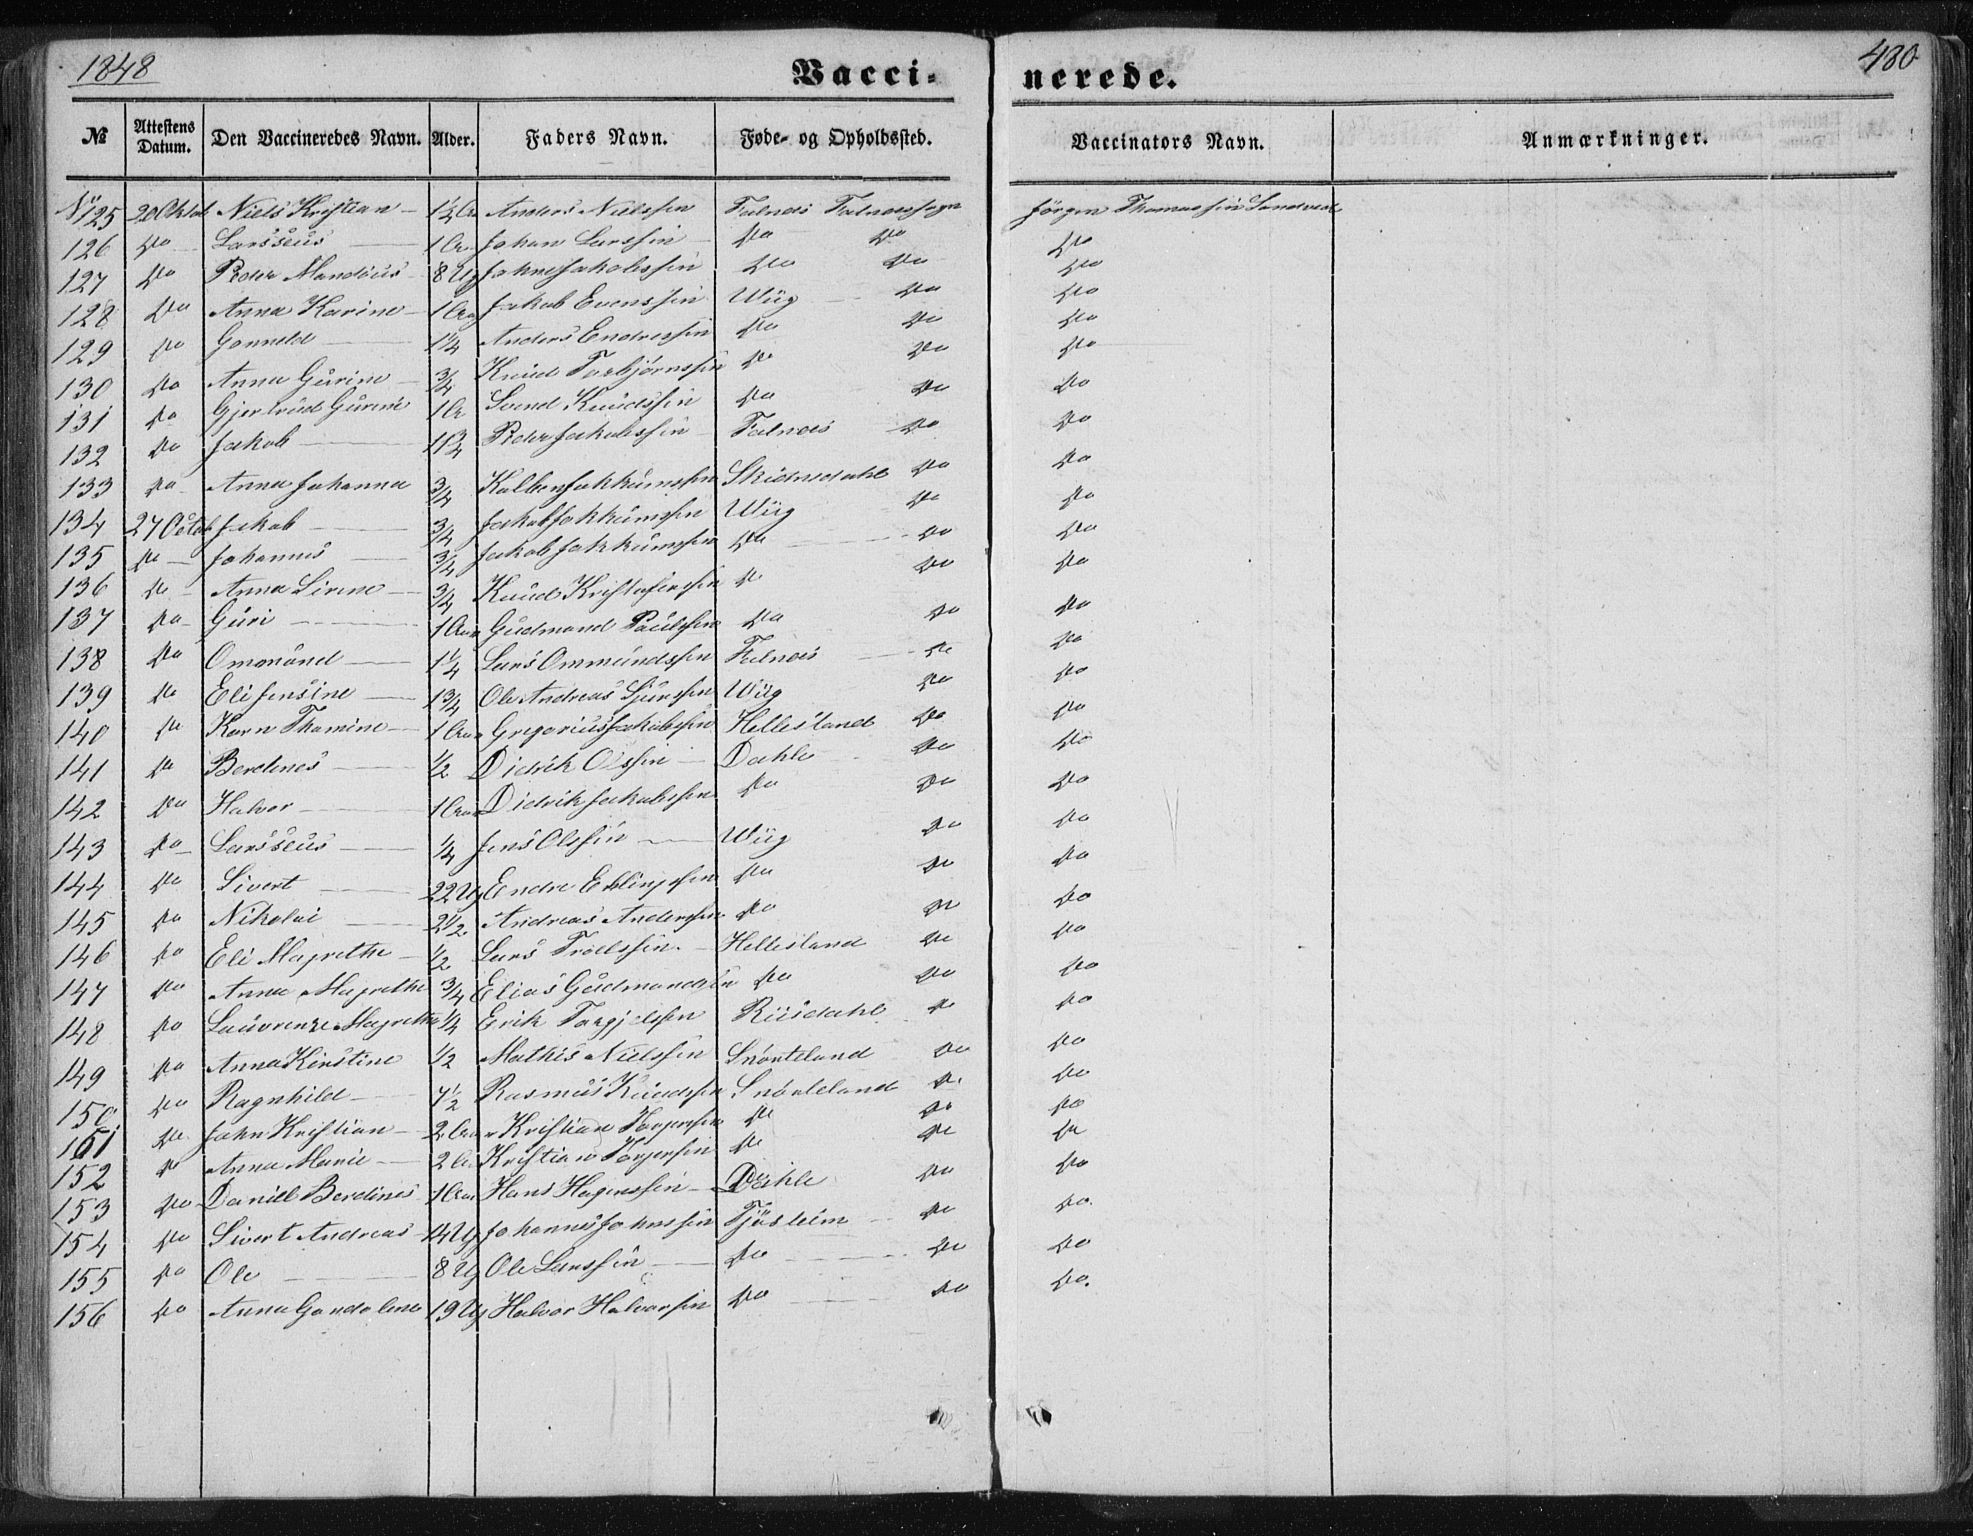 1848 Vacci- nerede. 480
№ Attestens Datum. Den Vaccineredes Navn. Alder. Faders Navn. Føde- og Opholdssted. Vaccinators Navn. Anmærkninger.
No 125 20 Oktbr Niels Kristian 1½ Anders Nielssen Falnæs Falnæs sogn Jörgen Thomassen Sandved
126 Do Larsseus 1 Johan Larssen Do Do Do
127 Do Peder Mandius 8 Ug Johns Jakobssen Do Do Do
128 Do Anna Karine 1 Aar Jakob Evenssen Wiig Do Do
129 Do Gonneld 1¼ Anders Endressen Do Do Do
130 Do Anna Gurine ¾ Knud Torbjørnssen Do Do Do
131 Do Gjertrud Gurine 1 Svend Knudssen Do Do Do
132 Do Jakob 1¾ Peder Jakobssen Falnæs Do Do
133 Do Anna Johanna ¾ Kolben Jokkumssen Skidnsdahl Do Do
134 27 Octob Jakob ¾ Jakob Jokkumssen Wiig Do Do
135 Do Johannes ¾ Jakob Jokkumssen Do Do Do
136 Do Anna Sirene ¾ Knud Kristofersen Do Do Do
137 Do Guri 1 Aar Gudmand Paulssen Do Do Do
138 Do Ommund 1¼ Lars Ommundssen Falnæs Do Do
139 Do Eli Jensine 1¾ Ole Andreas Sjurssen Wiig Do Do
140 Do Karn Thomine 1 Aar Gregorius Jakobssen Hellesland Do Do
141 Do Berdines ½ Didrik Olssen Dahle Do Do
142 Do Halvor 1 Aar Didrik Jakobssen Do Do Do
143 Do Larsseus ¼ Jens Olssen Wiig Do Do
144 Do Sivert 22 Ug Endre Erlingssen Do Do Do
145 Do Nikolai 2½ Andreas Anderssen Do Do Do
146 Do Eli Magrethe ½ Lars Troelssen Hellesland Do Do
147 Do Anna Magrethe ¾ Elias Gudmandsen Do Do Do
148 Do Lauvrenze Magrethe ¼ Erik Torgjelssen Riisdahl Do Do
149 Do Anna Kirstine ½ Mathis Nielssen Snörteland Do Do
150 Do Ragnhild 7½ Rasmus Knudssen Snörteland Do Do
151 Do John Kristian 2 Aar Kristian Torgerssen Do Do Do
152 Do Anna Marie 2 Kristian Torgerssen Do Do Do
153 Do Daniel Berdines 1 Aar Hans Hagenssen Dahle Do Do
154 Do Sivert Andreas 14 Ug Johannes Johnssen Tjösheim Do Do
155 Do Ole 8 Ug Ole Larssen Do Do Do
156 Do Anna Gondolene 19 Ug Halvor Halvorsen Do Do Do